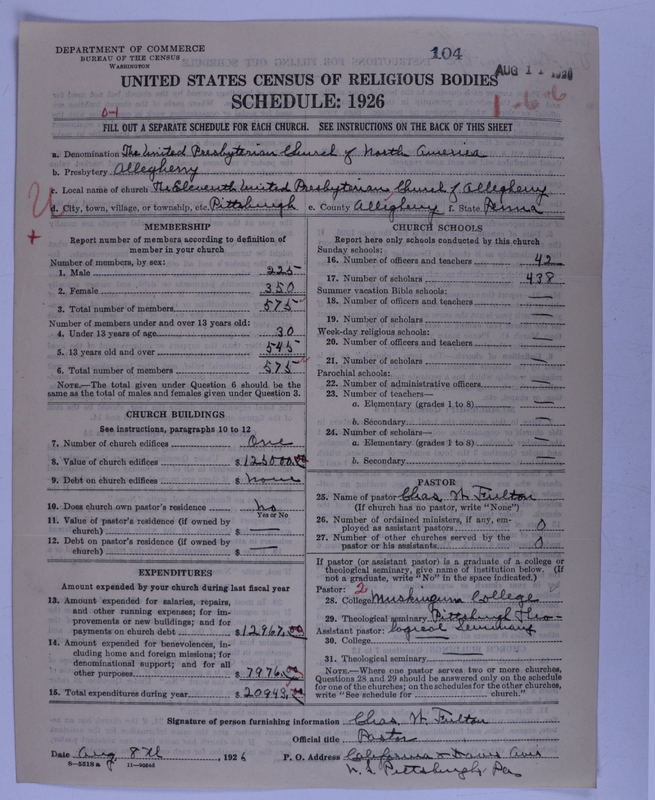 DEPARTMENT OF COMMERCE
BUREAU OF THE CENSUS
WASHINGTON
104
AUG 11 1926
UNITED STATES CENSUS OF RELIGIOUS BODIES
SCHEDULE: 1926
1-6-6
0-1
FILL OUT A SEPARATE SCHEDULE FOR EACH CHURCH. SEE INSTRUCTIONS ON THE BACK OF THIS SHEET
a. Denomination The United Presbyterian Church of North America
b. Presbytery Allegheny
c. Local name of church The Eleventh United Presbyterian Church of Allegheny
d. City, town, village, or township, etc. Pittsburgh e. County Allegheny f. State Penna
MEMBERSHIP
Report number of members according to definition of
member in your church
Number of members, by sex:
1. Male 225
2. Female 350
3. Total number of members 575
Number of members under and over 13 years old:
4. Under 13 years of age 30
5. 13 years old and over 545
6. Total number of members 575
NOTE.—The total given under Question 6 should be the
same as the total of males and females given under Question 3.
CHURCH BUILDINGS
See instructions, paragraphs 10 to 12
7. Number of church edifices One
8. Value of church edifices $ 125000.00
9. Debt on church edifices $ None
10. Does church own pastor's residence No
Yes or No
11. Value of pastor's residence (if owned by
church) $ —
12. Debt on pastor's residence (if owned by
church) $ —
EXPENDITURES
Amount expended by your church during last fiscal year
13. Amount expended for salaries, repairs,
and other running expenses; for im-
provements or new buildings; and for
payments on church debt $ 12967.00
14. Amount expended for benevolences, in-
cluding home and foreign missions; for
denominational support; and for all
other purposes $ 7976.00
15. Total expenditures during year $ 20943.00
CHURCH SCHOOLS
Report here only schools conducted by this church
Sunday schools:
16. Number of officers and teachers 42
17. Number of scholars 438
Summer vacation Bible schools:
18. Number of officers and teachers —
19. Number of scholars —
Week-day religious schools:
20. Number of officers and teachers —
21. Number of scholars —
Parochial schools:
22. Number of administrative officers —
23. Number of teachers—
a. Elementary (grades 1 to 8) —
b. Secondary —
24. Number of scholars—
a. Elementary (grades 1 to 8) —
b. Secondary —
PASTOR
25. Name of pastor Chas. W. Fulton
(If church has no pastor, write "None")
26. Number of ordained ministers, if any, em-
ployed as assistant pastors 0
27. Number of other churches served by the
pastor or his assistants 0
If pastor (or assistant pastor) is a graduate of a college or
theological seminary, give name of institution below. (If
not a graduate, write "No" in the space indicated.)
Pastor: 2
28. College Muskingum College
29. Theological seminary Pittsburgh Theo-
Assistant pastor: logical Seminary
30. College —
31. Theological seminary —
NOTE.—Where one pastor serves two or more churches,
Questions 28 and 29 should be answered only on the schedule
for one of the churches; on the schedules for the other churches,
write "See schedule for church."
Signature of person furnishing information Chas. W. Fulton
Official title Pastor
Date Aug 8th, 1926 P. O. Address California & Davis Aves
8-5518 a N. S. Pittsburgh Pa